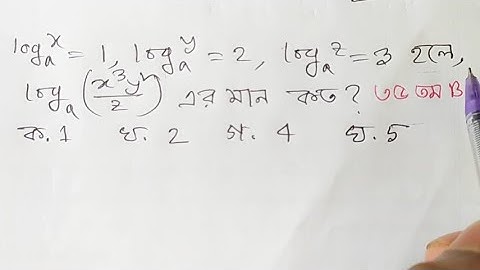 logₐx = 1, logₐy = 2, logₐz = 3 হলে,
logₐ(x³y²/z) এর মান কত? ৩৫ তম B
ক. 1 খ. 2 গ. 4 ঘ. 5